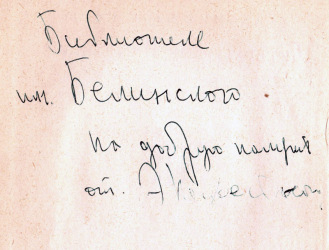 Библиотеке
им. Белинского
на добрую память
от.